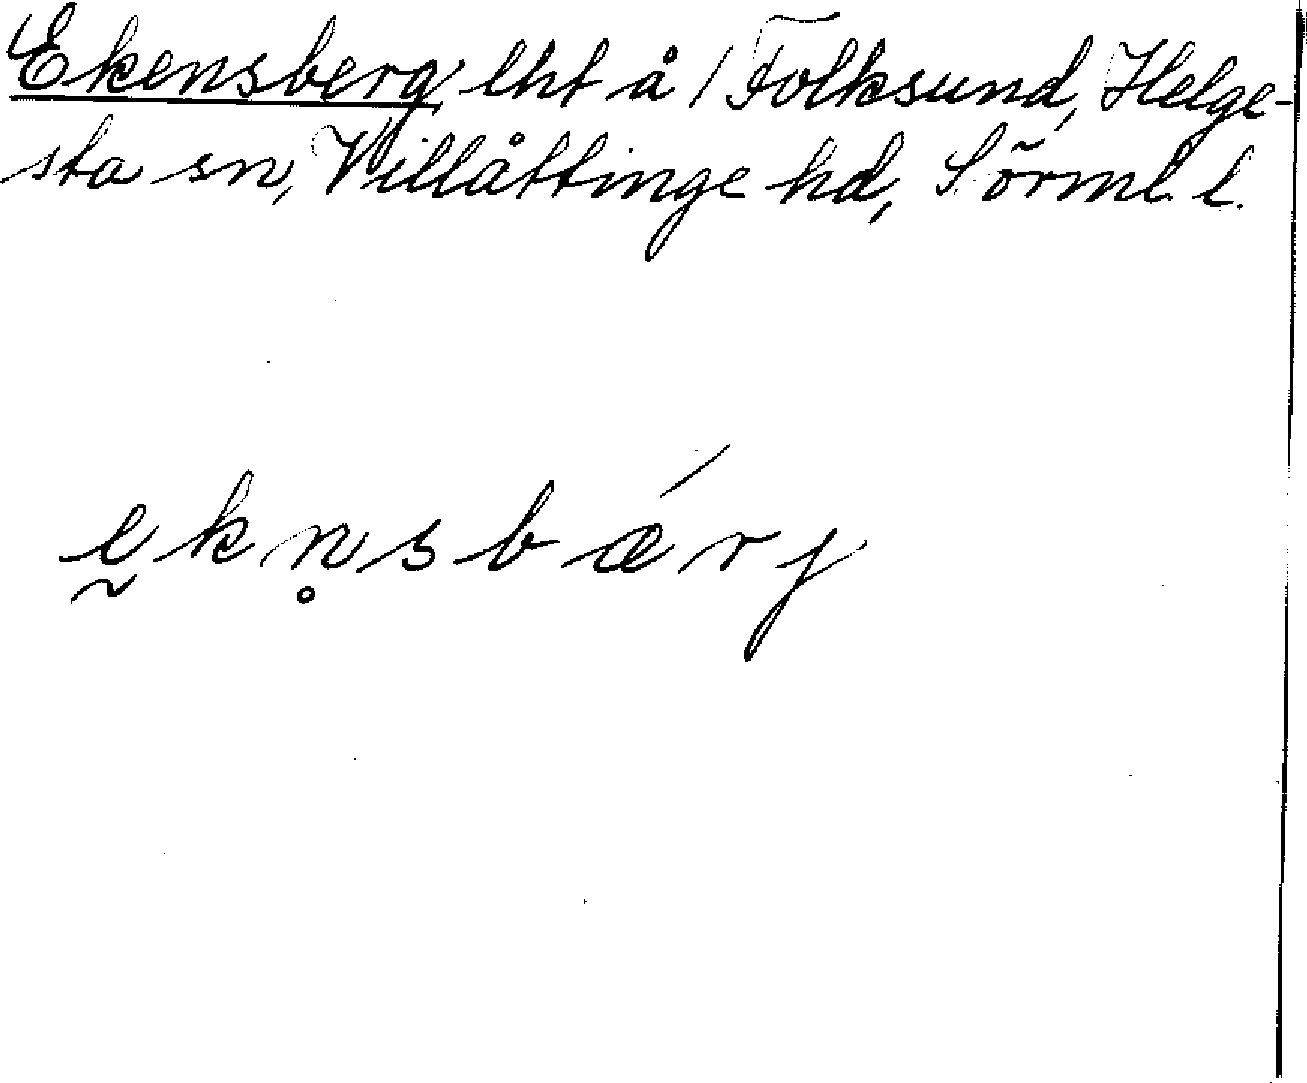 Ekensberg, lht å / Folksund, Helge-
sta sn, Villåttinge hd, Sörml. l.
ḛkn̥sbǽrj